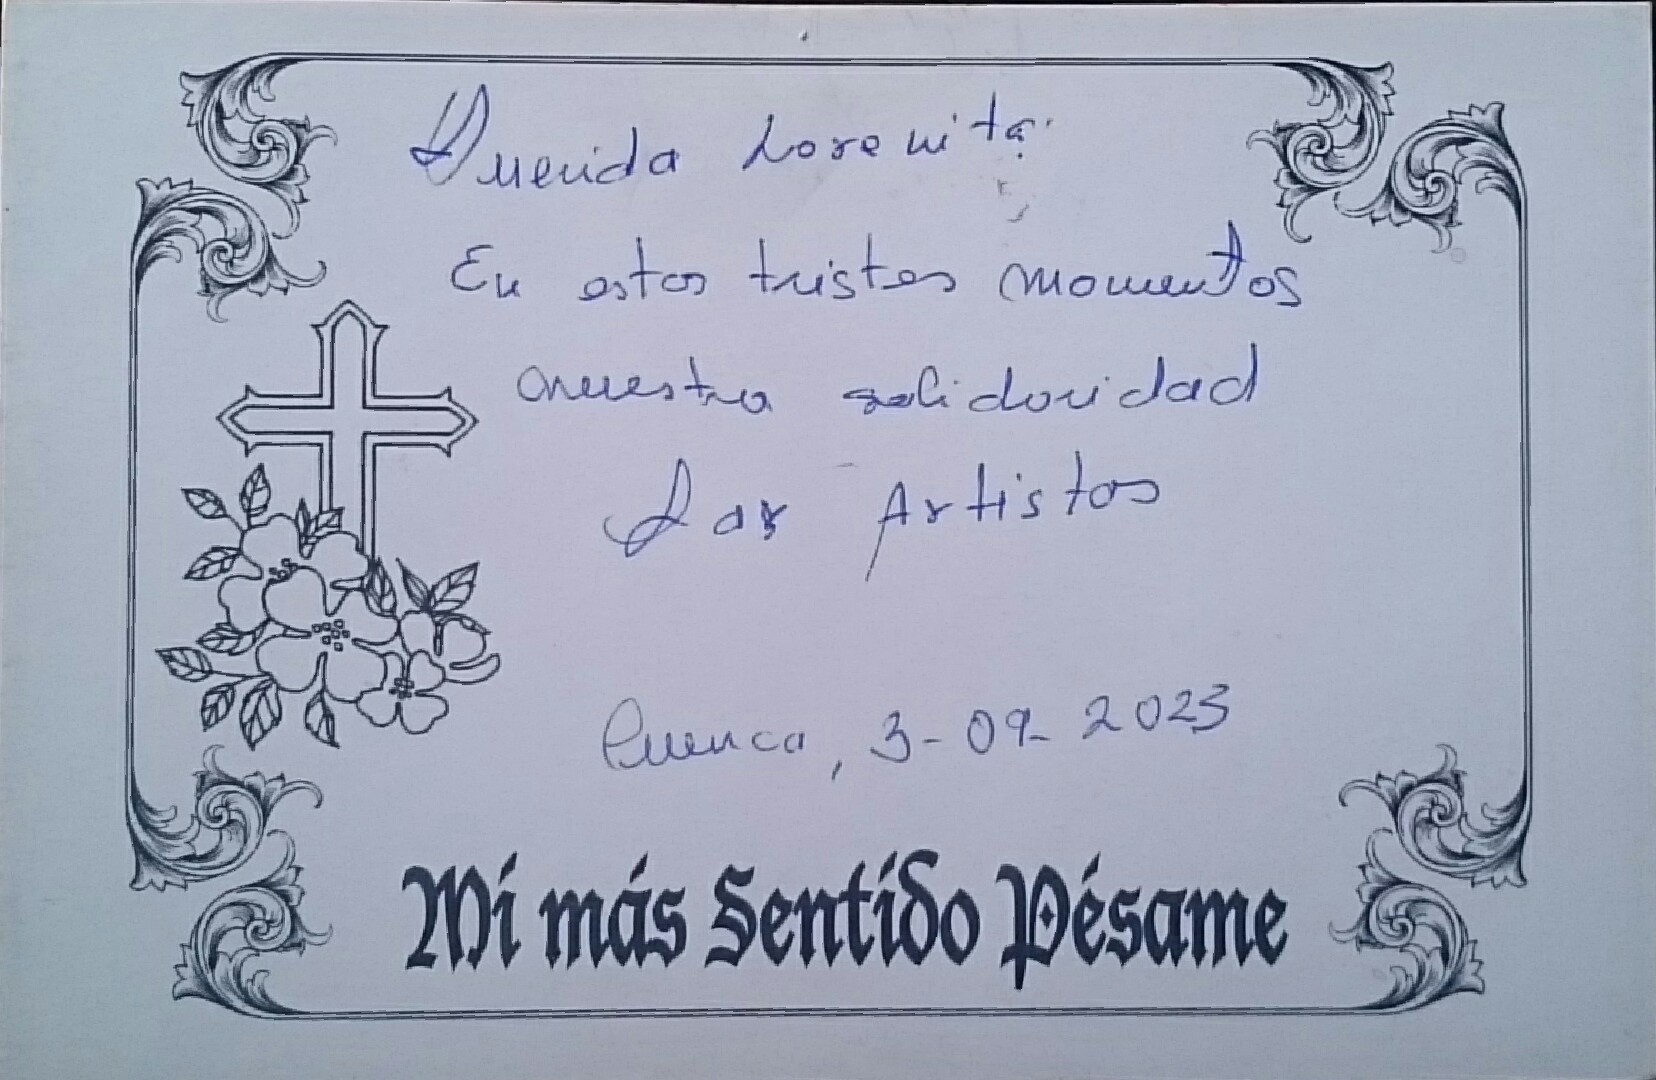 Querida Lorenita:
En estos tristes momentos
nuestra solidaridad
Las Artistas
Cuenca, 3-09-2023
Mi más Sentido Pésame